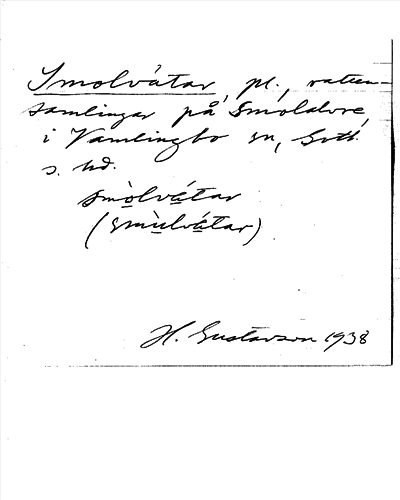 Smolvåtar, pl., vatten-
samlingar på Smoldarve,
i Vamlingbo sn, Gotl.
s. hd.
smòlvátar
(smùlvátar)
H. Gustavson 1938